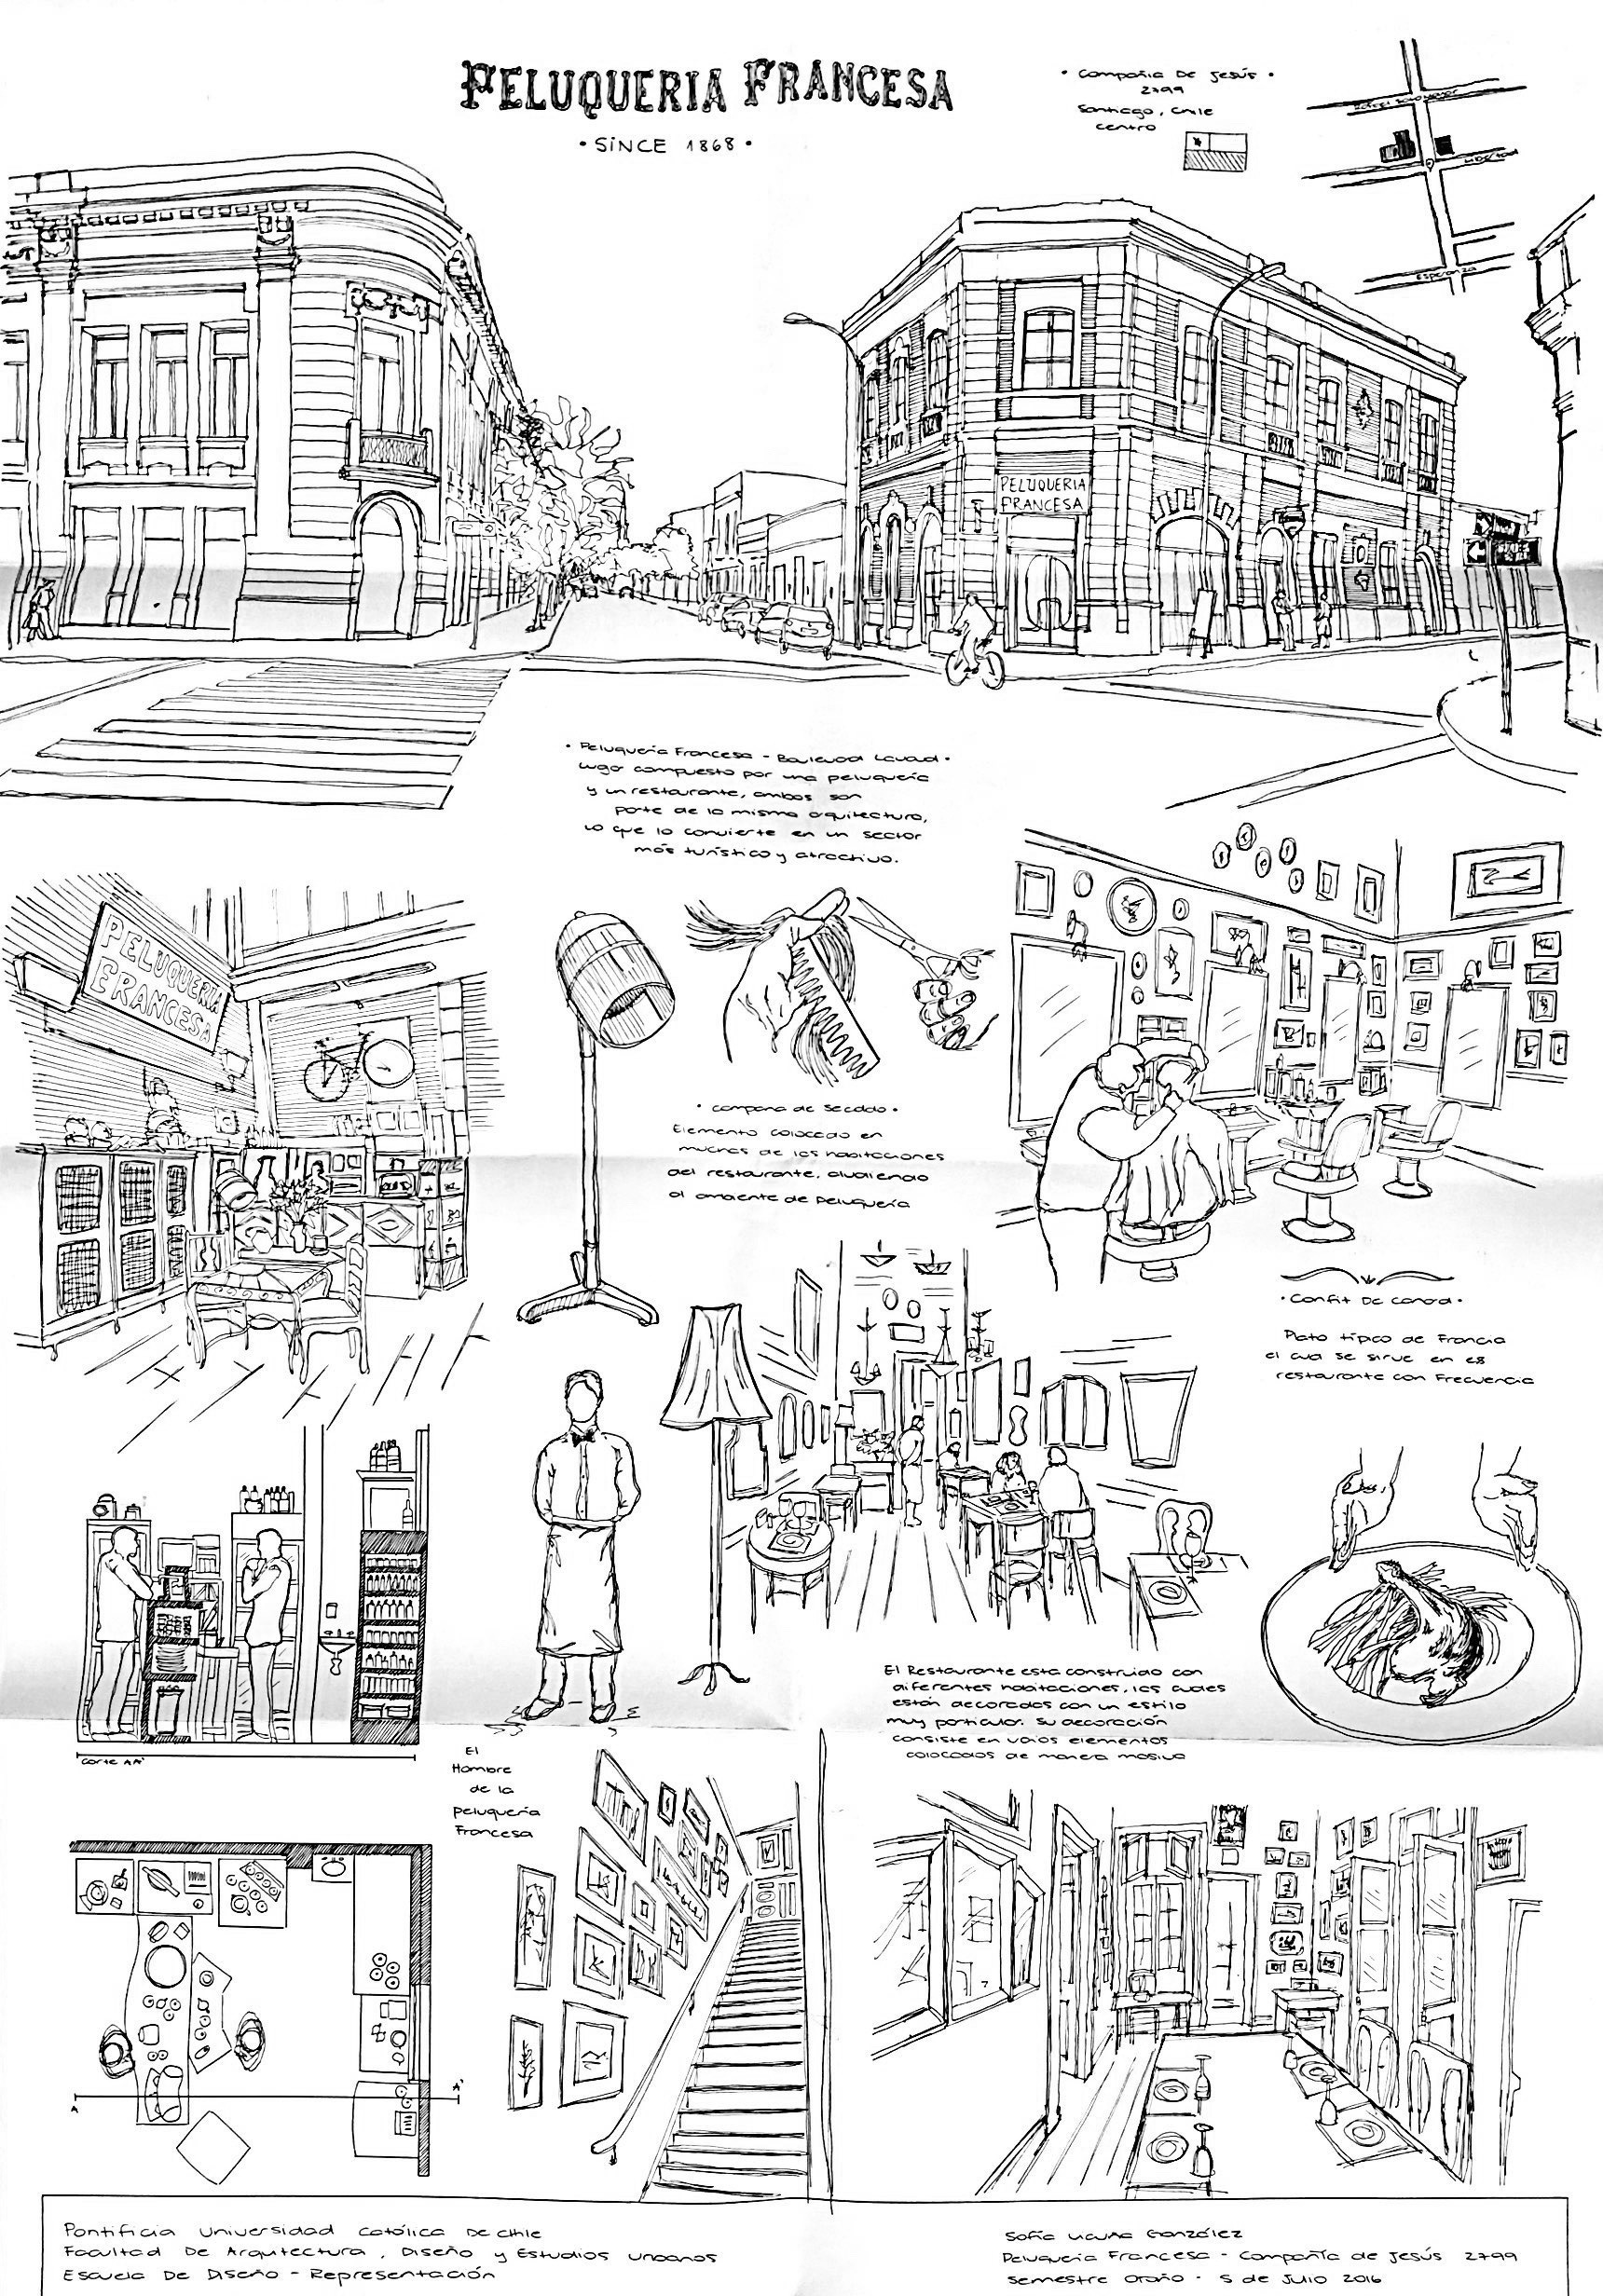 PELUQUERIA FRANCESA
• SINCE 1868 •
• Compañia De Jesús •
2799
Santiago, Chile
centro
Libertad
Esperanza
PELUQUERIA
FRANCESA
• Peluquería Francesa - Boulevard Lavaud •
Lugar compuesto por una peluquería
y un restaurante, ambos son
parte de la misma arquitectura,
lo que lo convierte en un sector
más turístico y atractivo.
PELUQUERIA
FRANCESA
• campana de secado •
Elemento colocado en
muchas de las habitaciones
del restaurante, aludiendo
al ambiente de peluquería
• Confit De canard •
Plato típico de Francia
el cual se sirve en es
restaurante con Frecuencia
El Restaurante esta construido con
diferentes habitaciones, las cuales
están decorados con un estilo
muy particular. Su decoración
consiste en varios elementos
colocados de manera masiva
corte AA'
El
Hombre
de la
peluquería
Francesa
A
A'
Pontificia Universidad Católica De Chile
Facultad De Arquitectura, Diseño y Estudios Urbanos
Escuela De Diseño - Representación
Sofía González
Peluqueria Francesa - Compañía de Jesús 2799
Semestre Otoño - 5 de Julio 2016